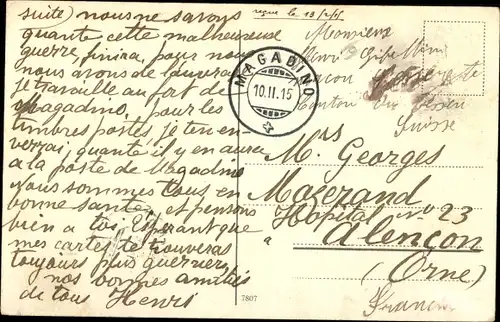 suite) nous ne savons
quante cette malheureuse
guerre, finira, pour nous
nous avons de l'ouvrage
je travaille au fort de
Magadino, pour les
timbres postes, je ten en-
verrai, quante il y en aurea
a la poste de Magadino
Nous sommes tous en
bonne santé, et pensons
bien a toi. Esperant que
mes cartes te trouveras
toujours plus guerriers,
nos bonnes amitiés
de tous Henri
reçue le 13/2/15
Monsieur
Henri
Canton du Tessin
Suisse
MAGADINO
10.II.15
Mrs Georges
Maserand
Hôpital no 23
à Alençon
(Orne)
France
7807